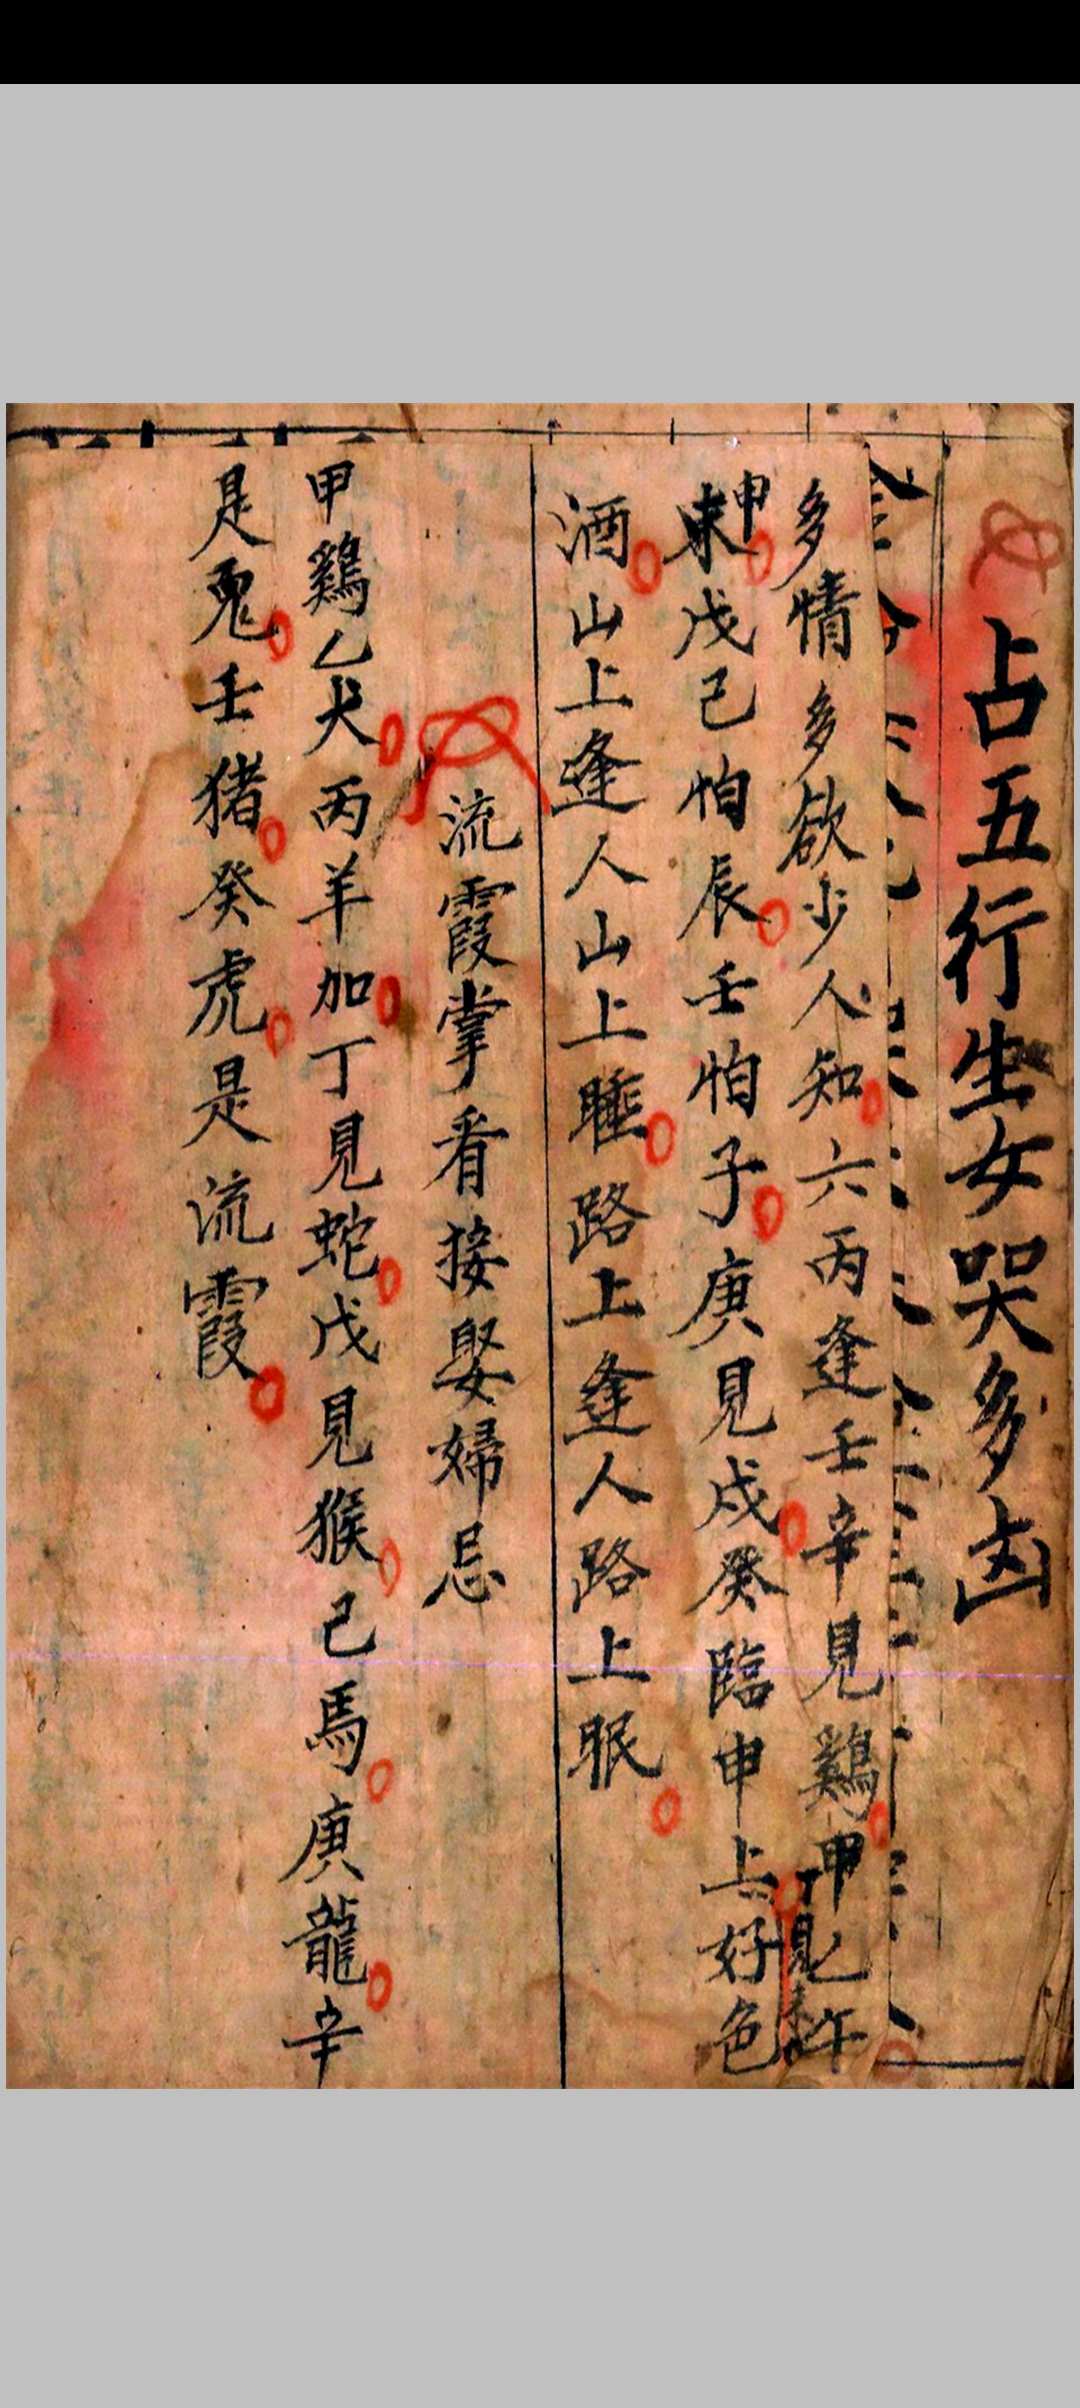 占五行生女哭多凶
多情多欲少人知六丙逢壬辛見鷄甲乙午
申
未戊己怕辰壬怕子庚見戌癸臨申上好色
丁見未
酒山上逢人山上睡路上逢人路上眠
流霞掌看接娶婦忌
甲鷄乙犬丙羊加丁見蛇戊見猴己馬庚龍辛
是兎壬猪癸虎是流霞